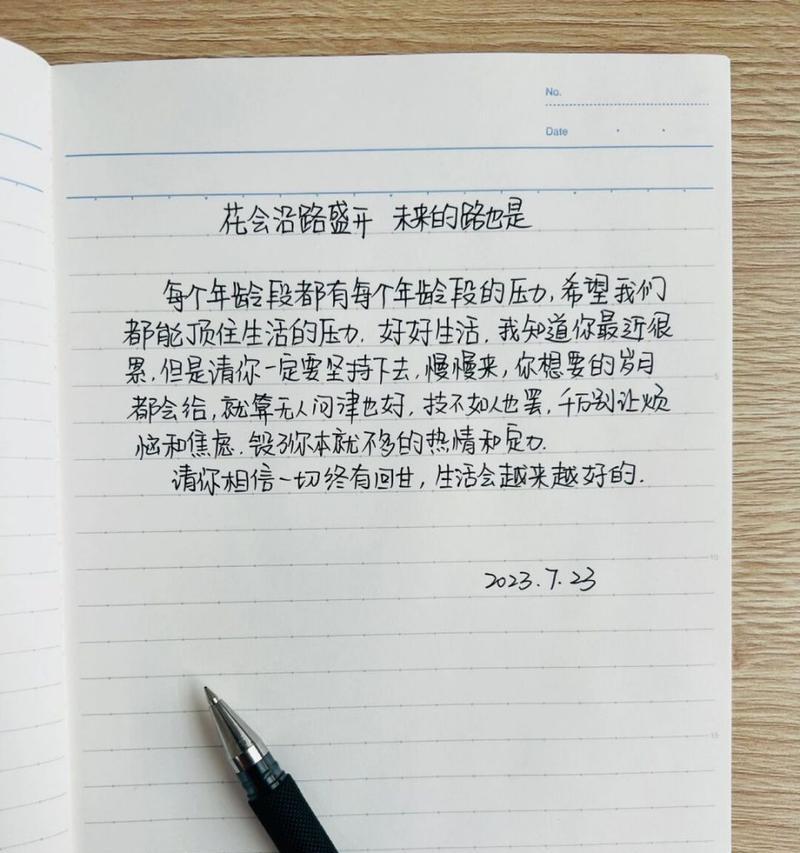 No.
Date
花会沿路盛开 未来的路也是
每个年龄段都有每个年龄段的压力,希望我们
都能顶住生活的压力.好好生活.我知道你最近很
累,但是请你一定要坚持下去,慢慢来,你想要的岁月
都会给,就算无人问津也好,技不如人也罢,千万别让烦
恼和焦虑.毁了你本就不多的热情和定力.
请你相信一切终有回甘,生活会越来越好的.
2023.7.23
5
10
15